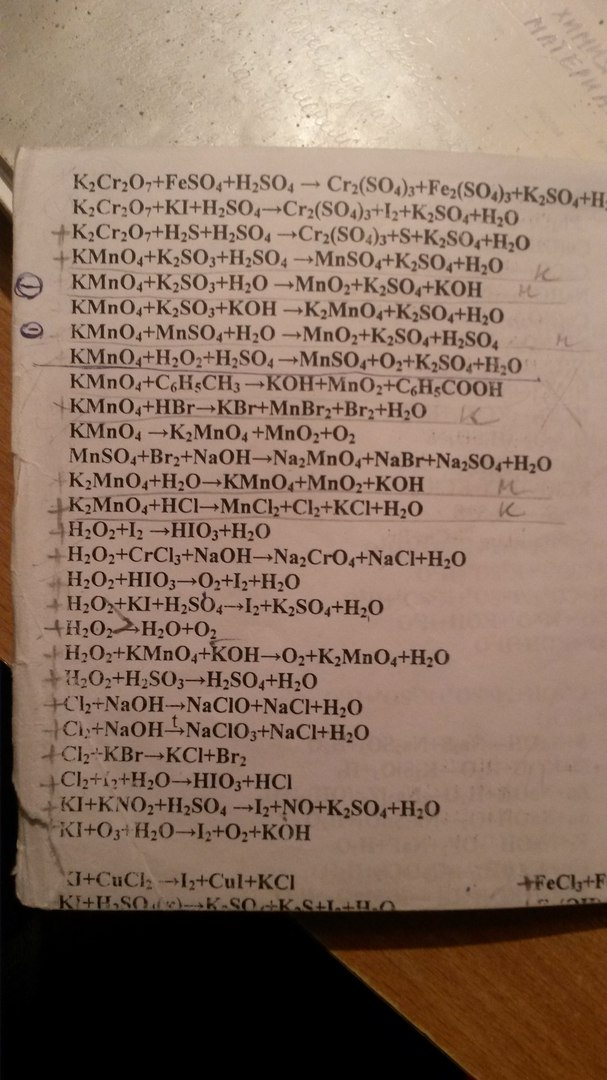 ХИМИЧ
МАТЕРИА
K₂Cr₂O₇+FeSO₄+H₂SO₄ → Cr₂(SO₄)₃+Fe₂(SO₄)₃+K₂SO₄+H₂
K₂Cr₂O₇+KI+H₂SO₄→Cr₂(SO₄)₃+I₂+K₂SO₄+H₂O
+K₂Cr₂O₇+H₂S+H₂SO₄ →Cr₂(SO₄)₃+S+K₂SO₄+H₂O
+KMnO₄+K₂SO₃+H₂SO₄→MnSO₄+K₂SO₄+H₂O к
KMnO₄+K₂SO₃+H₂O →MnO₂+K₂SO₄+KOH н
KMnO₄+K₂SO₃+KOH →K₂MnO₄+K₂SO₄+H₂O
KMnO₄+MnSO₄+H₂O →MnO₂+K₂SO₄+H₂SO₄ н
KMnO₄+H₂O₂+H₂SO₄→MnSO₄+O₂+K₂SO₄+H₂O
KMnO₄+C₆H₅CH₃→KOH+MnO₂+C₆H₅COOH
+KMnO₄+HBr→KBr+MnBr₂+Br₂+H₂O к
KMnO₄ →K₂MnO₄+MnO₂+O₂
MnSO₄+Br₂+NaOH→Na₂MnO₄+NaBr+Na₂SO₄+H₂O
+K₂MnO₄+H₂O→KMnO₄+MnO₂+KOH н
+K₂MnO₄+HCl→MnCl₂+Cl₂+KCl+H₂O к
+H₂O₂+I₂ →HIO₃+H₂O
+H₂O₂+CrCl₃+NaOH→Na₂CrO₄+NaCl+H₂O
+H₂O₂+HIO₃→O₂+I₂+H₂O
+H₂O₂+KI+H₂SO₄→I₂+K₂SO₄+H₂O
+H₂O₂→H₂O+O₂
+H₂O₂+KMnO₄+KOH→O₂+K₂MnO₄+H₂O
+H₂O₂+H₂SO₃→H₂SO₄+H₂O
+Cl₂+NaOH→NaClO+NaCl+H₂O
+Cl₂+NaOH –t→NaClO₃+NaCl+H₂O
+Cl₂+KBr→KCl+Br₂
+Cl₂+I₂+H₂O→HIO₃+HCl
+KI+KNO₂+H₂SO₄ →I₂+NO+K₂SO₄+H₂O
KI+O₃+H₂O→I₂+O₂+KOH
KI+CuCl₂ →I₂+CuI+KCl +FeCl₃+F
KI+H₂SO₄(к)→K₂SO₄+K₂S+I₂+H₂O